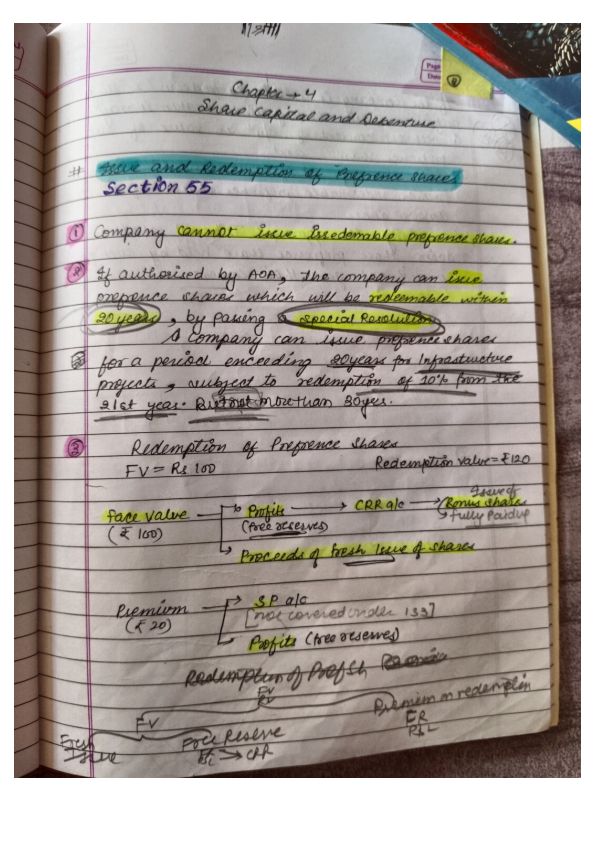 Page
Date
Chapter → 4
Share Capital and Debenture
# Issue and Redemption of Prefrence shares
Section 55
① Company cannot issue irredemable prefrence shares.
② If authorised by AOA, the company can issue
prefrence shares which will be redeemable within
20 years, by passing a special Resolution
Company can issue prefrence shares
for a period exceeding 20years for Infrastructure
projects, subject to redemption of 10% from the
21st year. But not more than 30yrs.
③ Redemption of Prefrence shares
FV = Rs 100 Redemption value = ₹120
Issue of
Face value → Profits → CRR a/c → Bonus shares
(₹ 100) (free reserves) → fully paidup
→ Proceeds of fresh Issue of shares
Premium → SP a/c
(₹ 20) [not covered under 133]
Profits (free reserves)
Redemption of Pref Sh
FV
Premium on redemption
FV
Fresh Free Reserve
Issue → CRR